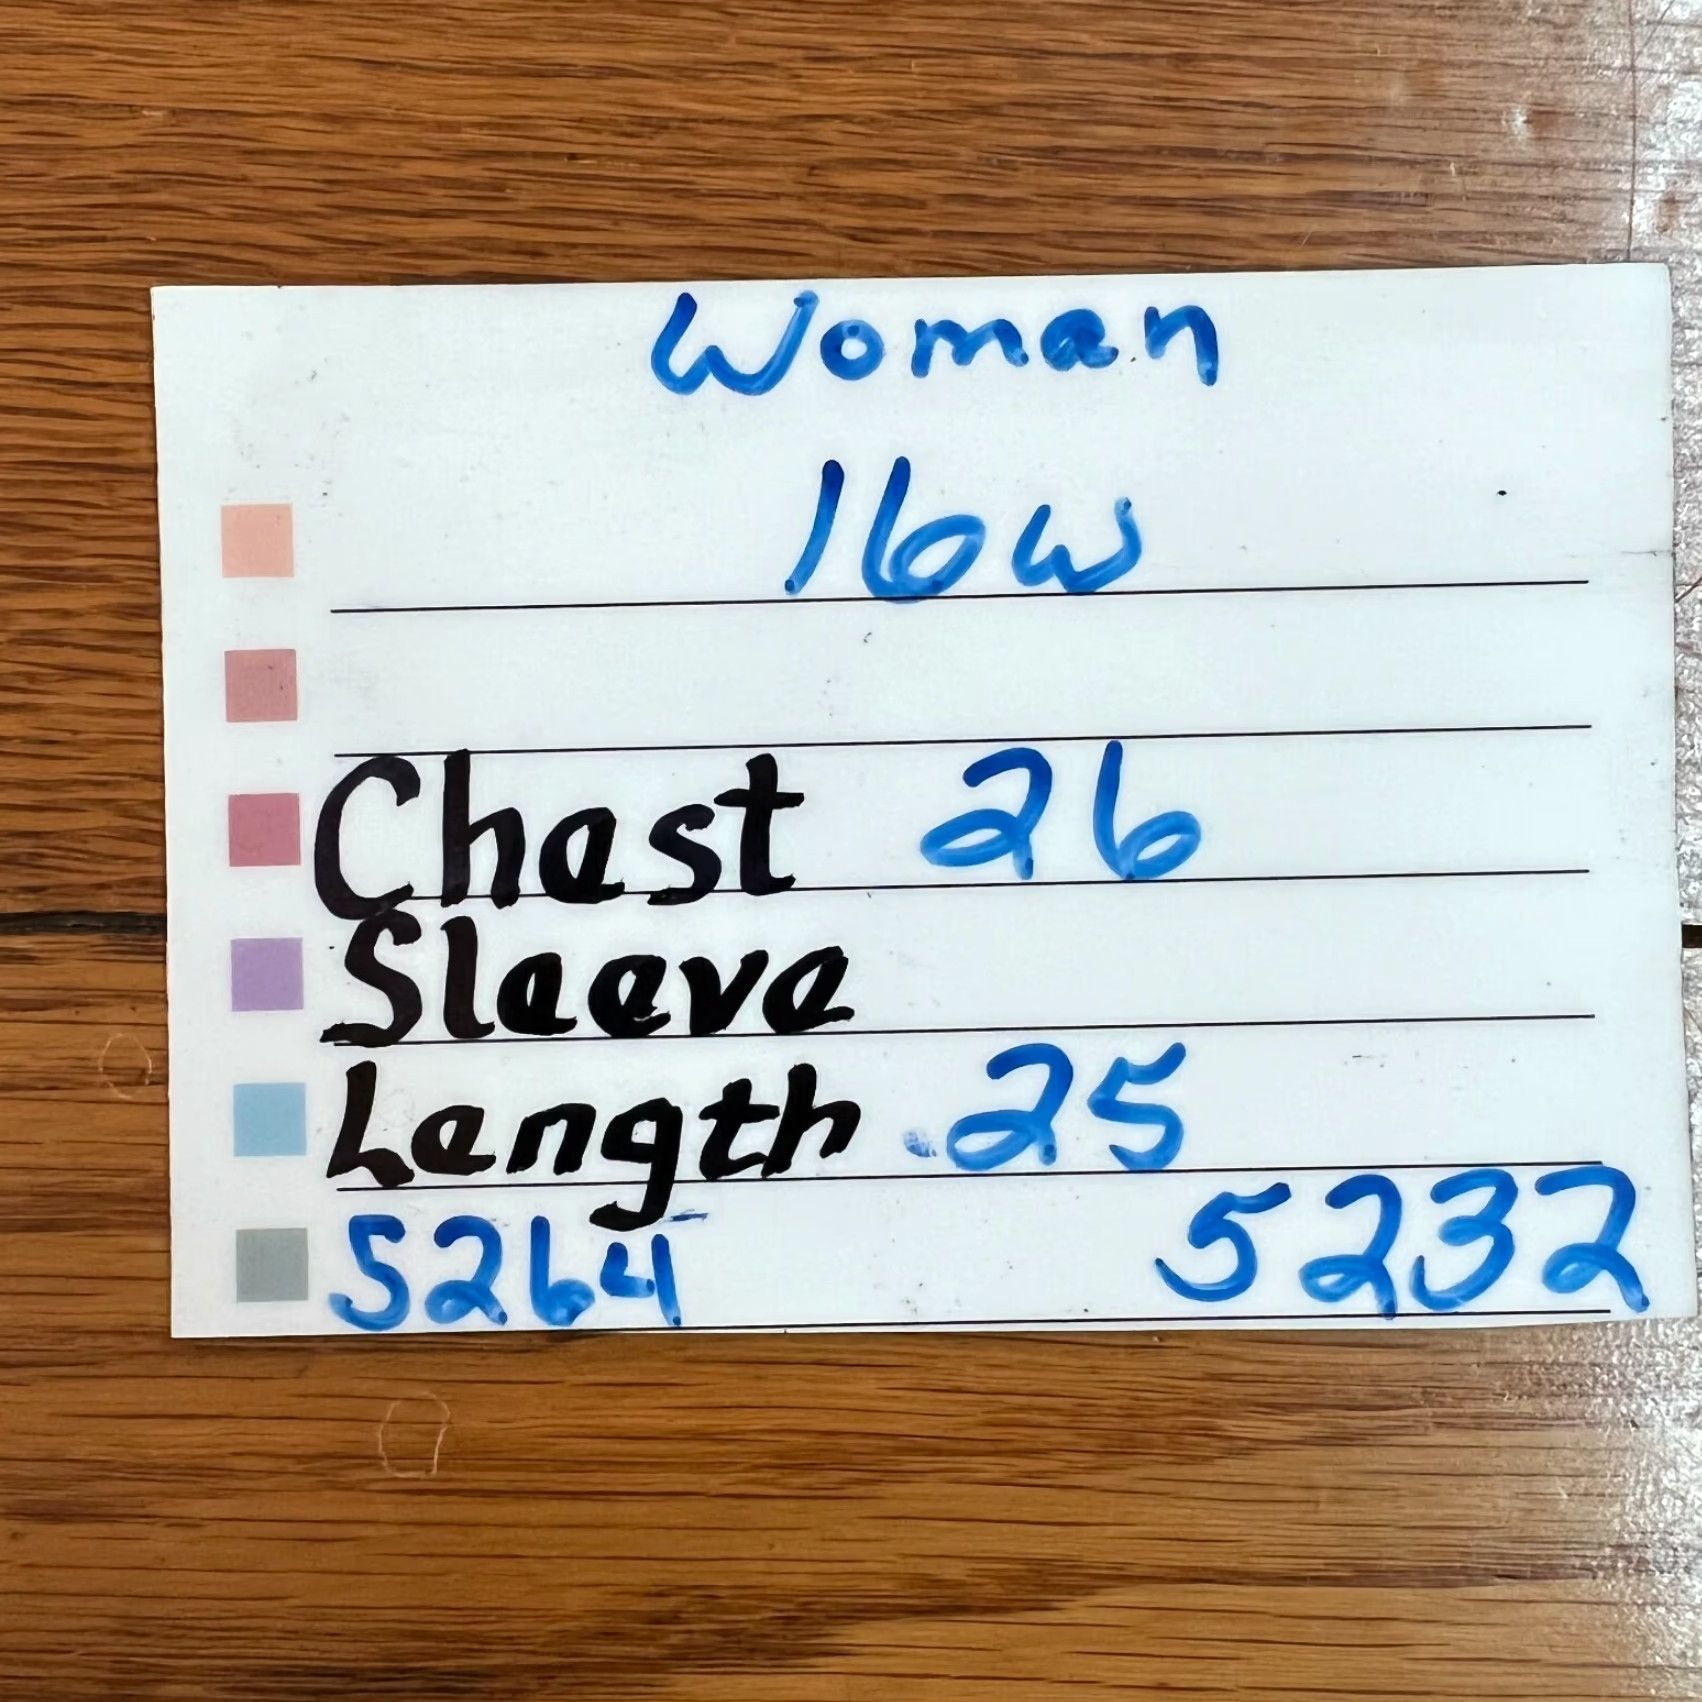 Woman
16W
Chest 26
Sleeve
Length 25
5264 5232